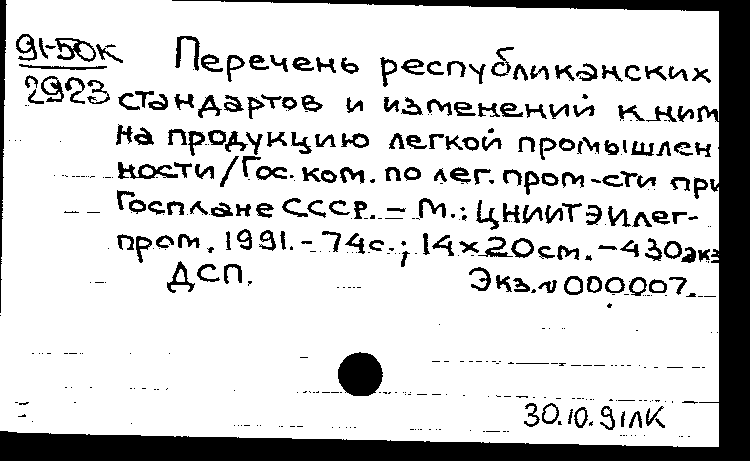 91-50К
2923
Перечень республиканских
стандартов и изменений к ним
на продукцию легкой промышлен
ности/Гос. ком. по лег. пром-сти при
Госплане СССР. – М.: ЦНИИТЭИлег-
пром. 1991. – 74с.; 14х20см. – 430экз
ДСП. Экз. № 000007.
30.10.91ЛК